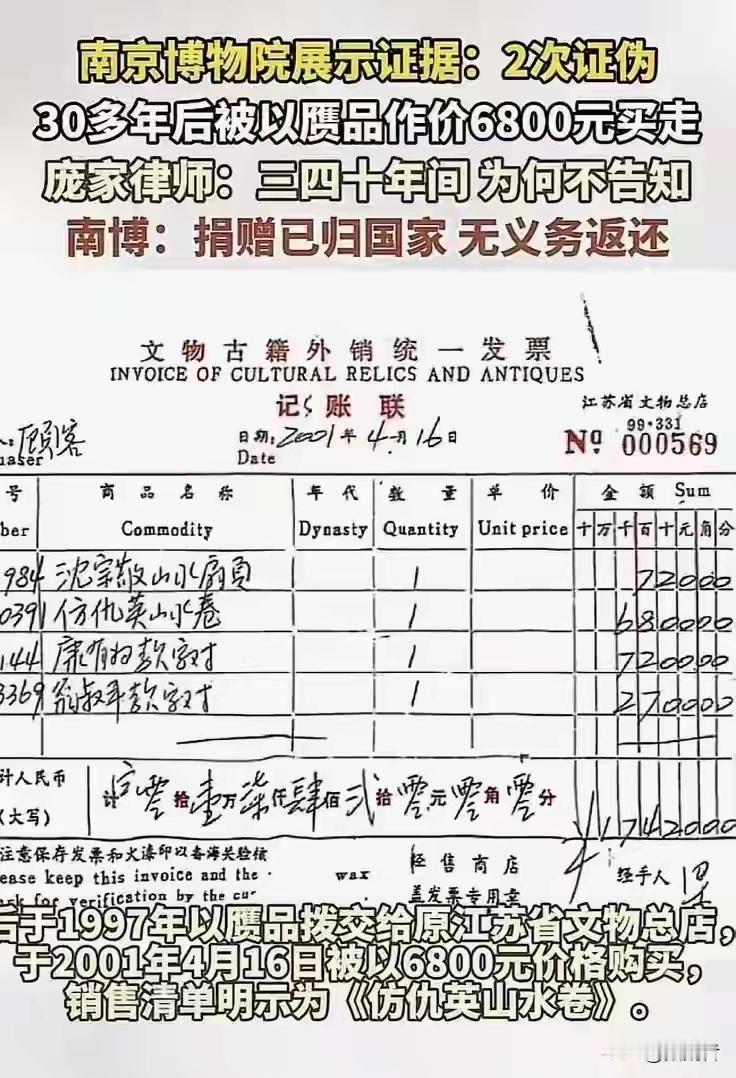 南京博物院展示证据：2次证伪
30多年后被以赝品作价6800元买走
庞家律师：三四十年间 为何不告知
南博：捐赠已归国家 无义务返还
文物古籍外销统一发票
INVOICE OF CULTURAL RELICS AND ANTIQUES
记账联
江苏省文物总店
99·331
顾客
日期：2001年4月16日
Nº 000569
uaser
Date
号 商品名称 年代 数量 单价 金额 Sum
ber Commodity Dynasty Quantity Unit price 十万千百十元角分
984 沈宗敬山水扇页 1 72000
0391 仿仇英山水卷 1 680000
144 康有为款字对 1 720000
3369 翁叔平款字对 1 270000
计人民币
（大写）
零拾壹万柒仟肆佰贰拾零元零角零分 ¥1742000
注意保存发票和火漆印以备海关验核
ease keep this invoice and the wax
rk for verification by the cus
经售商店
盖发票专用章
经手人
后于1997年以赝品拨交给原江苏省文物总店，
于2001年4月16日被以6800元价格购买，
销售清单明示为《仿仇英山水卷》。